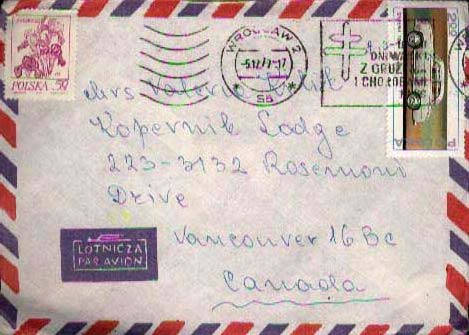 POLSKA 50
WROCŁAW 2
-5.12.7
-17
5a
DNI WALKI
Z GRUŹ
I CHOROBAMI
200
Mrs Valeria
Kopernik Lodge
223-3132 Rosemont
Drive
Vancouver 16 Bc
Canada
LOTNICZA
PAR AVION